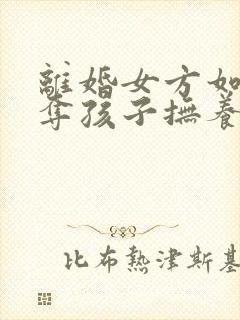 離婚女方如
奪孩子撫養
比布熱津斯基